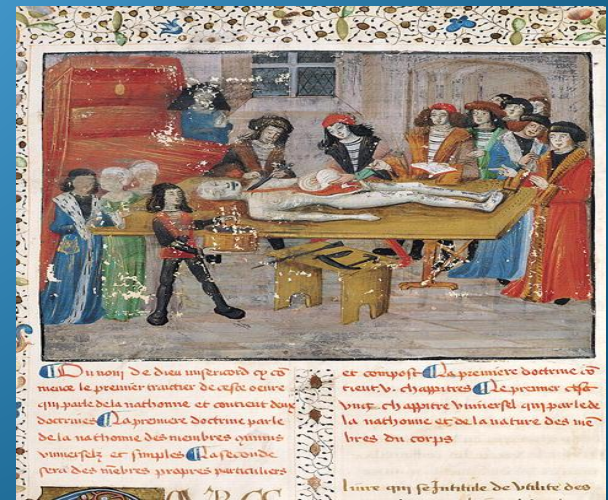 Du nom de dieu misericord cy cō
mace le premier traictier de ceste oeure
qui parle de la nathomie et contient deux
doctrines La premiere doctrine parle
de la nathomie des membres
vniuerselz et simples La seconde
sera des mēbres propres particuliers
et compost La premiere doctrine cō
tient .v. chappitres Le premier est
vng chappitre vniuersel qui parle de
la nathomie et de la nature des mē
bres du corps
liure qui se Intitule de vtilite des